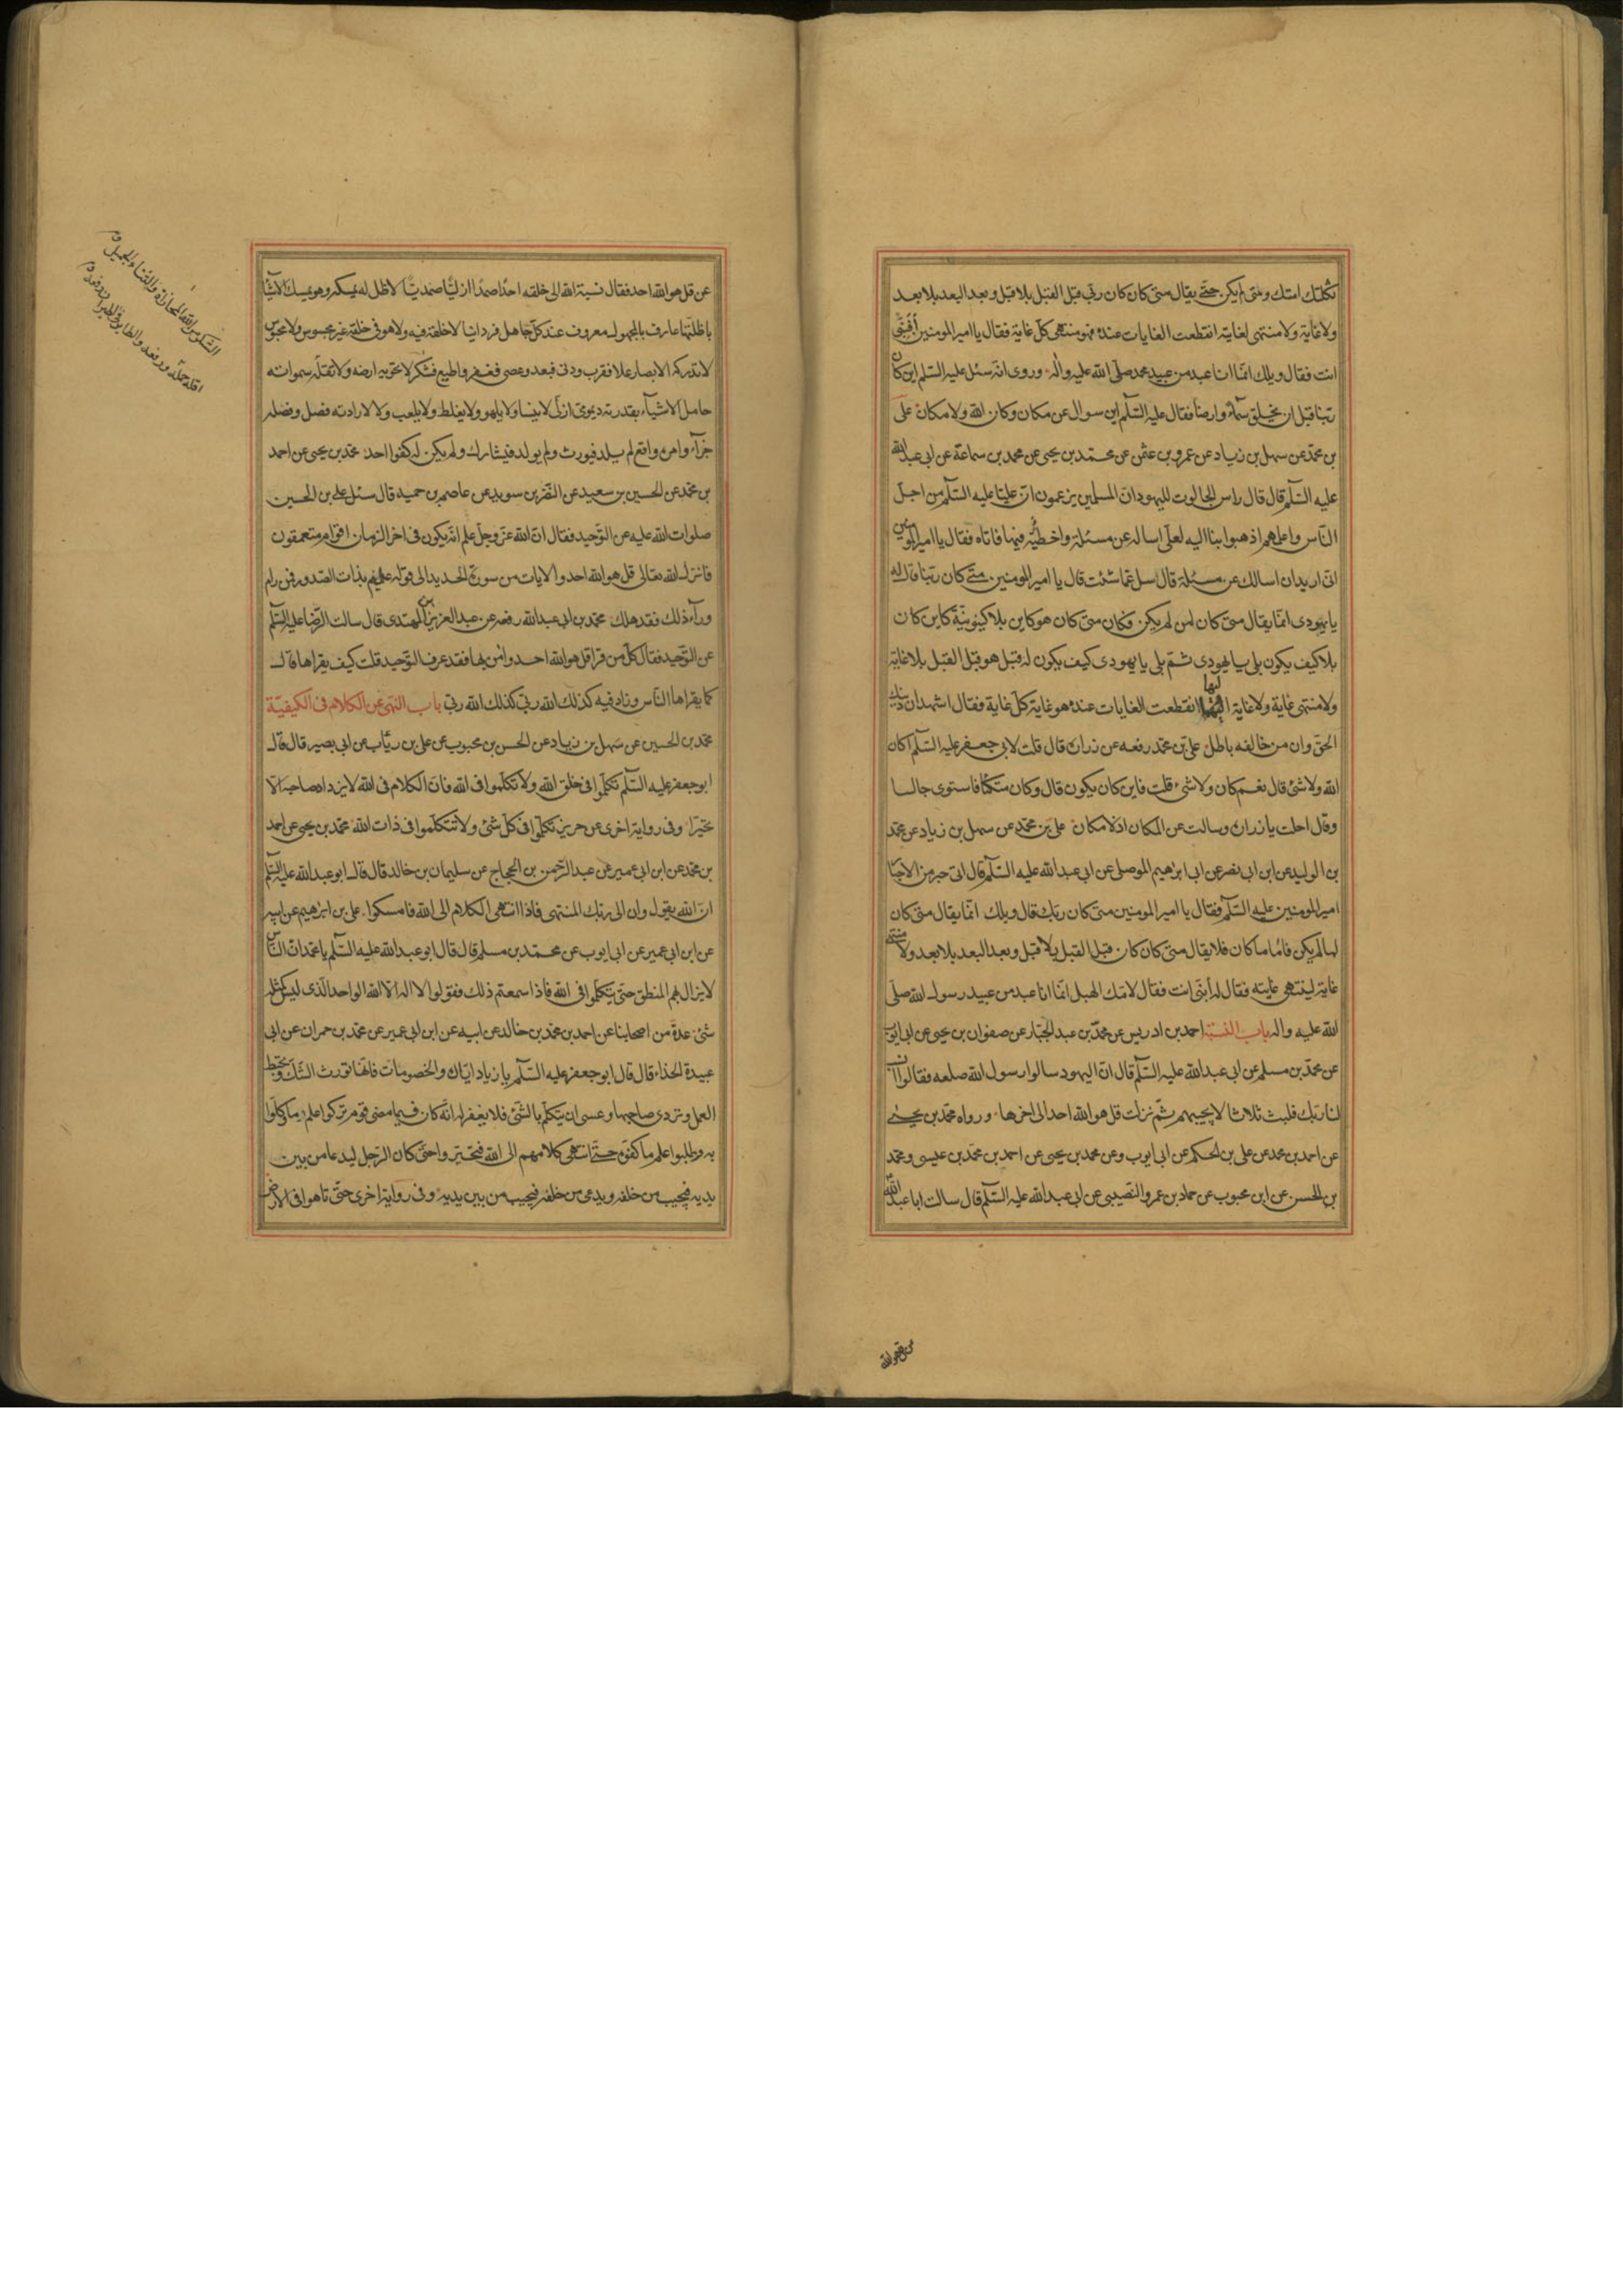 ثكلتك امّك ومتى لم يكن حتّى يقال متى كان كان ربّى قبل القبل بلا قبل وبعد البعد بلا بعد
ولا غاية ولا منتهى لغايته انقطعت الغايات عنده فهو منتهى كلّ غاية فقال يا امير المومنين أفنبىّ
انت فقال ويلك انّما انا عبد من عبيد محمد صلّى الله عليه واٰله وروى انّه سئل عليه السّلم اين كان
ربّنا قبل ان يخلق سمآء وارضا فقال عليه السّلم اين سوال عن مكان وكان الله ولا مكان علىّ
بن محمّد عن سهل بن زياد عن عمرو بن عثمن عن محمّد بن يحيى عن محمد بن سماعة عن ابى عبد الله
عليه السّلم قال قال راس الجالوت لليهود انّ المسلمين يزعمون انّ عليّا عليه السّلم من اجدل
النّاس واعلمهم اذهبوا بنا اليه لعلّى اساله عن مسئلة واخطّيه فيها فاتاه فقال يا امير المومنين
انّى اريد ان اسالك عن مسئلة قال سل عمّا شئت قال يا امير المومنين متى كان ربّنا قال له
يا يهودى انّما يقال متى كان لمن لم يكن فكان متى كان هو كاين بلا كينونيّة كاين كان
بلا كيف يكون بلى يا يهودى ثمّ بلى يا يهودى كيف يكون له قبل هو قبل القبل بلا غاية
ولا منتهى غاية ولا غاية اليها انقطعت الغايات عنده هو غاية كلّ غاية فقال اشهد ان دينك
الحق وان من خالفه باطل علىّ بن محمّد رفعه عن زرارة قال قلت لابى جعفر عليه السّلم اكان
الله ولا شئ قال نعم كان ولا شئ قلت فاين كان يكون قال وكان متكئا فاستوى جالسا
وقال احلت يا زرارة وسالت عن المكان اذ لا مكان علىّ بن محمّد عن سهل بن زياد عن محمّد
بن الوليد عن ابن ابى نصر عن ابى ابرٰهيم الموصلى عن ابى عبد الله عليه السّلم قال اتى حبر من الاحبار
امير المومنين عليه السّلم فقال يا امير المومنين متى كان ربّك قال ويلك انّما يقال متى كان
لما لم يكن فامّا ما كان فلا يقال متى كان كان قبل القبل بلا قبل وبعد البعد بلا بعد ولا منتهى
غاية لينتهى غايته فقال له أنبىّ انت فقال لامّك الهبل انّما انا عبد من عبيد رسول الله صلّى
الله عليه واله باب النسبة احمد بن ادريس عن محمّد بن عبد الجبّار عن صفوان بن يحيى عن ابى ايّوب
عن محمّد بن مسلم عن ابى عبد الله عليه السّلم قال انّ اليهود سالوا رسول الله صلعم فقالوا انسب
لنا ربّك فلبث ثلاثا لا يجيبهم ثمّ نزلت قل هو الله احد الى اخرها ورواه محمّد بن يحيى
عن احمد بن محمد عن على بن الحكم عن ابى ايوب وعن محمد بن يحيى عن احمد بن محمّد بن عيسى ومحمّد
بن الحسن عن ابن محبوب عن حماد بن عمرو النّصيبى عن ابى عبد الله عليه السّلم قال سالت ابا عبد الله
عن قل هو الله احد فقال نسبة الله الى خلقه احدًا صمدًا ازليّا صمديّا لا ظل له يمسكه وهو يمسك الاشيآء
باظلّتها عارف بالمجهول معروف عند كلّ جاهل فردانيا لا خلقه فيه ولا هو فى خلقه غير محسوس ولا مجسوس
لا تدركه الابصار علا فقرب ودنى فبعد وعصى فغفر واطيع فشكر لا تحويه ارضه ولا تقلّه سمواته
حامل الاشيآء بقدرته ديمومىّ ازلىّ لا ينسا ولا يلهو ولا يغلط ولا يلعب ولا لارادته فصل وفصله
جزآء وامره واقع لم يلد فيورث ولم يولد فيشارك ولم يكن له كفوا احد محمّد بن يحيى عن احمد
بن محمّد عن الحسين بن سعيد عن النّضر بن سويد عن عاصم بن حميد قال سئل على بن الحسين
صلوات الله عليه عن التّوحيد فقال انّ الله عزّ وجلّ علم انّه يكون فى اخر الزمان اقوام متعمقون
فانزل الله تعالى قل هو الله احد والايات من سورة الحديد الى قوله عليم بذات الصّدور فمن رام
ورآء ذلك فقد هلك محمّد بن ابى عبد الله رفعه عن عبد العزيز بن المهتدى قال سالت الرّضا عليه السّلم
عن التّوحيد فقال كلّ من قرا قل هو الله احد وامن بها فقد عرف التّوحيد قلت كيف يقراها قال
كما يقراها النّاس وزاد فيه كذلك الله ربّى كذلك الله ربّى باب النّهى عن الكلام فى الكيفيّة
محمّد بن الحسين عن سهل بن زياد عن الحسن بن محبوب عن على بن رئاب عن ابى بصير قال قال
ابو جعفر عليه السّلم تكلّموا فى خلق الله ولا تكلّموا فى الله فانّ الكلام فى الله لا يزداد صاحبه الّا
تحيّرا وفى رواية اخرى عن حريز تكلّموا فى كلّ شئ ولا تتكلّموا فى ذات الله محمّد بن يحيى عن احمد
بن محمّد عن ابن ابى عمير عن عبد الرّحمن بن الحجاج عن سليمان بن خالد قال قال ابو عبد الله عليه السّلم
انّ الله يقول وان الى ربّك المنتهى فاذا انتهى الكلام الى الله فامسكوا على بن ابرٰهيم عن ابيه
عن ابن ابى عمير عن ابى ايوب عن محمّد بن مسلم قال قال ابو عبد الله عليه السّلم يا محمّد انّ النّاس
لا يزال بهم المنطق حتّى يتكلّموا فى الله فاذا سمعتم ذلك فقولوا لا اله الّا الله الواحد الّذى ليس كمثله
شئ عدّة من اصحابنا عن احمد بن محمّد بن خالد عن ابيه عن ابن ابى عمير عن محمّد بن حمران عن ابى
عبيدة الحذاء قال قال ابو جعفر عليه السّلم يا زياد ايّاك والخصومات فانّها تورث الشّكّ وتحبط
العمل وتردى صاحبها وعسى ان يتكلّم بالشّئ فلا يغفر له انّه كان فيما مضى قوم تركوا علم ما وكّلوا
به وطلبوا علم ما كفوه حتّى انتهى كلامهم الى الله فتحيّروا حتّى كان الرّجل ليدعا من بين
يديه فيجيب من خلفه ويدعى من خلفه فيجيب من بين يديه وفى رواية اخرى حتّى تاهوا فى الارض